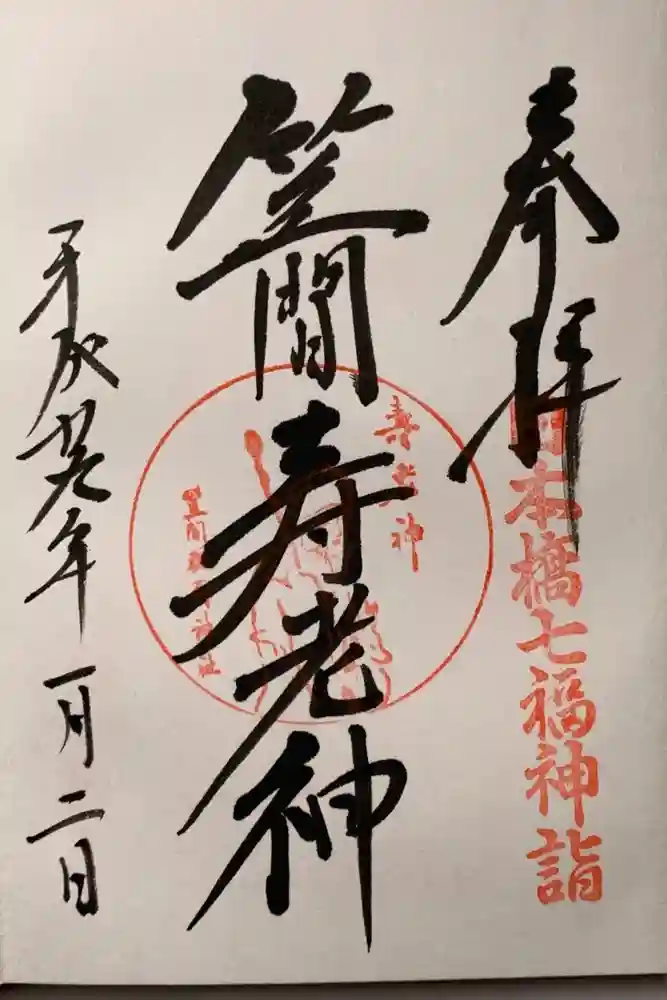 奉拝
日本橋七福神詣
笠間寿老神
寿老神
笠間稲荷神社
平成廿九年一月二日